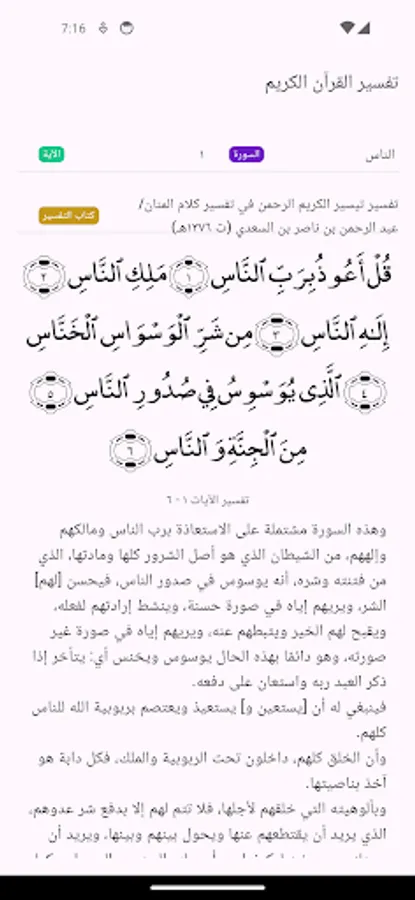 7:16
تفسير القرآن الكريم
الناس السورة ١ الآية
تفسير تيسير الكريم الرحمن في تفسير كلام المنان/
عبد الرحمن بن ناصر بن السعدي (ت ١٣٧٦هـ) كتاب التفسير
قُلْ أَعُوذُ بِرَبِّ ٱلنَّاسِ ١ مَلِكِ ٱلنَّاسِ ٢
إِلَٰهِ ٱلنَّاسِ ٣ مِن شَرِّ ٱلْوَسْوَاسِ ٱلْخَنَّاسِ
٤ ٱلَّذِى يُوَسْوِسُ فِى صُدُورِ ٱلنَّاسِ ٥
مِنَ ٱلْجِنَّةِ وَٱلنَّاسِ ٦
تفسير الآيات ١ - ٦
وهذه السورة مشتملة على الاستعاذة برب الناس ومالكهم
وإلههم، من الشيطان الذي هو أصل الشرور كلها ومادتها، الذي
من فتنته وشره، أنه يوسوس في صدور الناس، فيحسن [لهم]
الشر، ويريهم إياه في صورة حسنة، وينشط إرادتهم لفعله،
ويقبح لهم الخير ويثبطهم عنه، ويريهم إياه في صورة غير
صورته، وهو دائمًا بهذه الحال يوسوس ويخنس أي: يتأخر إذا
ذكر العبد ربه واستعان على دفعه.
فينبغي له أن [يستعين و] يستعيذ ويعتصم بربوبية الله للناس
كلهم.
وأن الخلق كلهم، داخلون تحت الربوبية والملك، فكل دابة هو
آخذ بناصيتها.
وبألوهيته التي خلقهم لأجلها، فلا تتم لهم إلا بدفع شر عدوهم،
الذي يريد أن يقتطعهم عنها ويحول بينهم وبينها، ويريد أن